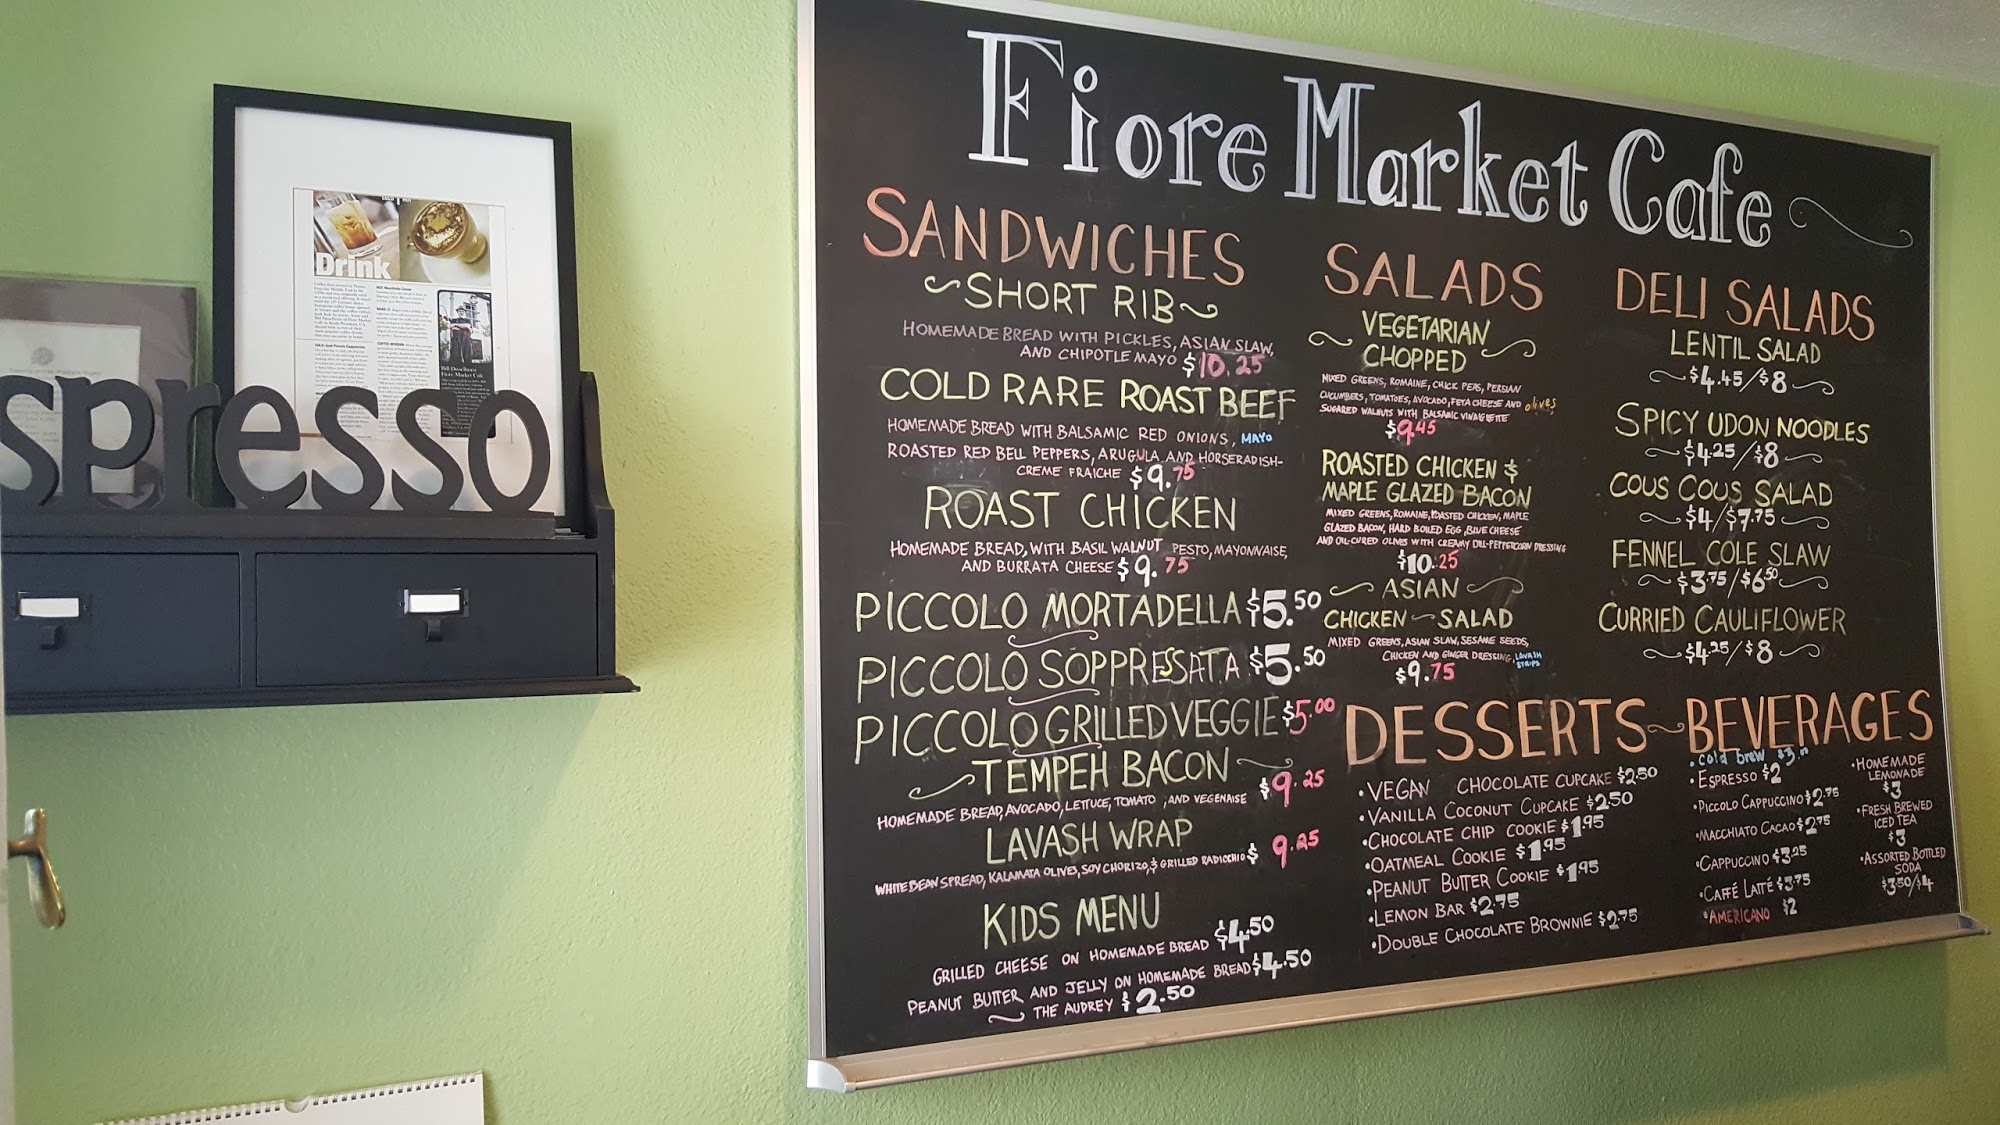 Drink
spresso
Fiore Market Cafe
SANDWICHES
SHORT RIB
HOMEMADE BREAD WITH PICKLES, ASIAN SLAW,
AND CHIPOTLE MAYO $10.25
COLD RARE ROAST BEEF
HOMEMADE BREAD WITH BALSAMIC RED ONIONS, MAYO
ROASTED RED BELL PEPPERS, ARUGULA AND HORSERADISH-
CREME FRAICHE $9.75
ROAST CHICKEN
HOMEMADE BREAD, WITH BASIL WALNUT PESTO, MAYONNAISE,
AND BURRATA CHEESE $9.75
PICCOLO MORTADELLA $5.50
PICCOLO SOPPRESSATA $5.50
PICCOLO GRILLED VEGGIE $5.00
TEMPEH BACON
HOMEMADE BREAD, AVOCADO, LETTUCE, TOMATO, AND VEGENAISE $9.25
LAVASH WRAP
WHITE BEAN SPREAD, KALAMATA OLIVES, SOY CHORIZO, & GRILLED RADICCHIO $9.25
KIDS MENU
GRILLED CHEESE ON HOMEMADE BREAD $4.50
PEANUT BUTTER AND JELLY ON HOMEMADE BREAD $4.50
THE AUDREY $2.50
SALADS
VEGETARIAN
CHOPPED
MIXED GREENS, ROMAINE, CHICK PEAS, PERSIAN
CUCUMBERS, TOMATOES, AVOCADO, FETA CHEESE AND olives
SUGARED WALNUTS WITH BALSAMIC VINAIGRETTE
$9.45
ROASTED CHICKEN &
MAPLE GLAZED BACON
MIXED GREENS, ROMAINE, ROASTED CHICKEN, MAPLE
GLAZED BACON, HARD BOILED EGG, BLUE CHEESE
AND OIL-CURED OLIVES WITH CREAMY DILL-PEPPERCORN DRESSING
$10.25
ASIAN
CHICKEN SALAD
MIXED GREENS, ASIAN SLAW, SESAME SEEDS,
CHICKEN AND GINGER DRESSING, LAVASH STRIPS
$9.75
DELI SALADS
LENTIL SALAD
$4.45/$8
SPICY UDON NOODLES
$4.25/$8
COUS COUS SALAD
$4/$7.75
FENNEL COLE SLAW
$3.75/$6.50
CURRIED CAULIFLOWER
$4.25/$8
DESSERTS
•VEGAN CHOCOLATE CUPCAKE $2.50
•VANILLA COCONUT CUPCAKE $2.50
•CHOCOLATE CHIP COOKIE $1.95
•OATMEAL COOKIE $1.95
•PEANUT BUTTER COOKIE $1.95
•LEMON BAR $2.75
•DOUBLE CHOCOLATE BROWNIE $2.75
BEVERAGES
•cold brew $3.00
•ESPRESSO $2
•PICCOLO CAPPUCCINO $2.75
•MACCHIATO CACAO $2.75
•CAPPUCCINO $3.25
•CAFFÉ LATTÉ $3.75
•AMERICANO $2
•HOMEMADE
LEMONADE
$3
•FRESH BREWED
ICED TEA
$3
•ASSORTED BOTTLED
SODA
$3.50/$4